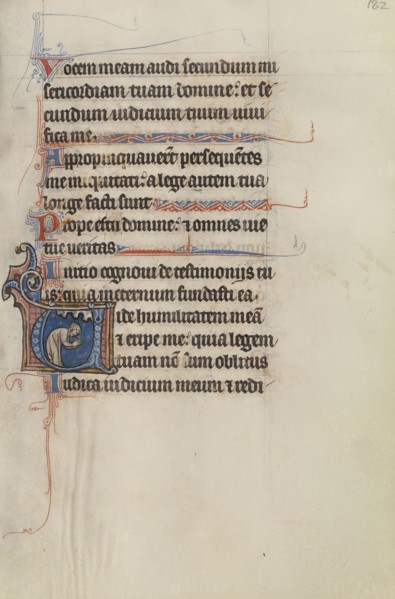 182
Vocem meam audi secundum mi
sericordiam tuam domine: et se
cundum iudicium tuum uiui
fica me.
Appropinquauerūt persequētes
me iniquitati: a lege autem tua
longe facti sunt.
Prope es tu domine: ⁊ omnes uie
tue ueritas.
Initio cognoui de testimonijs tu
is: quia in eternum fundasti ea.
Uide humilitatem meā
⁊ eripe me: quia legem
tuam nō sum oblitus
Iudica iudicium meum ⁊ redi